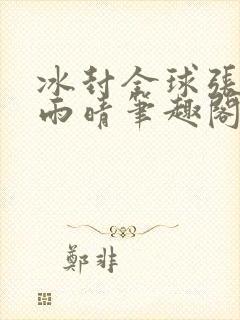 冰封全球張
雨晴筆趣閣
鄭非